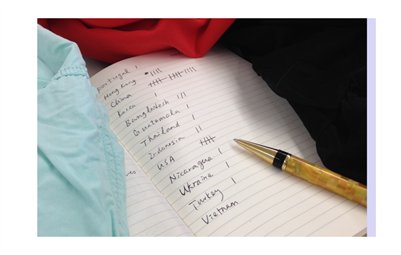 Portugal |
Hong Kong ||||
China |||| |||| ||||
Korea |
Bangladesh |||
Guatemala |
Thailand |
Indonesia ||
USA ||||
Nicaragua |
Ukraine |
Turkey |
Vietnam